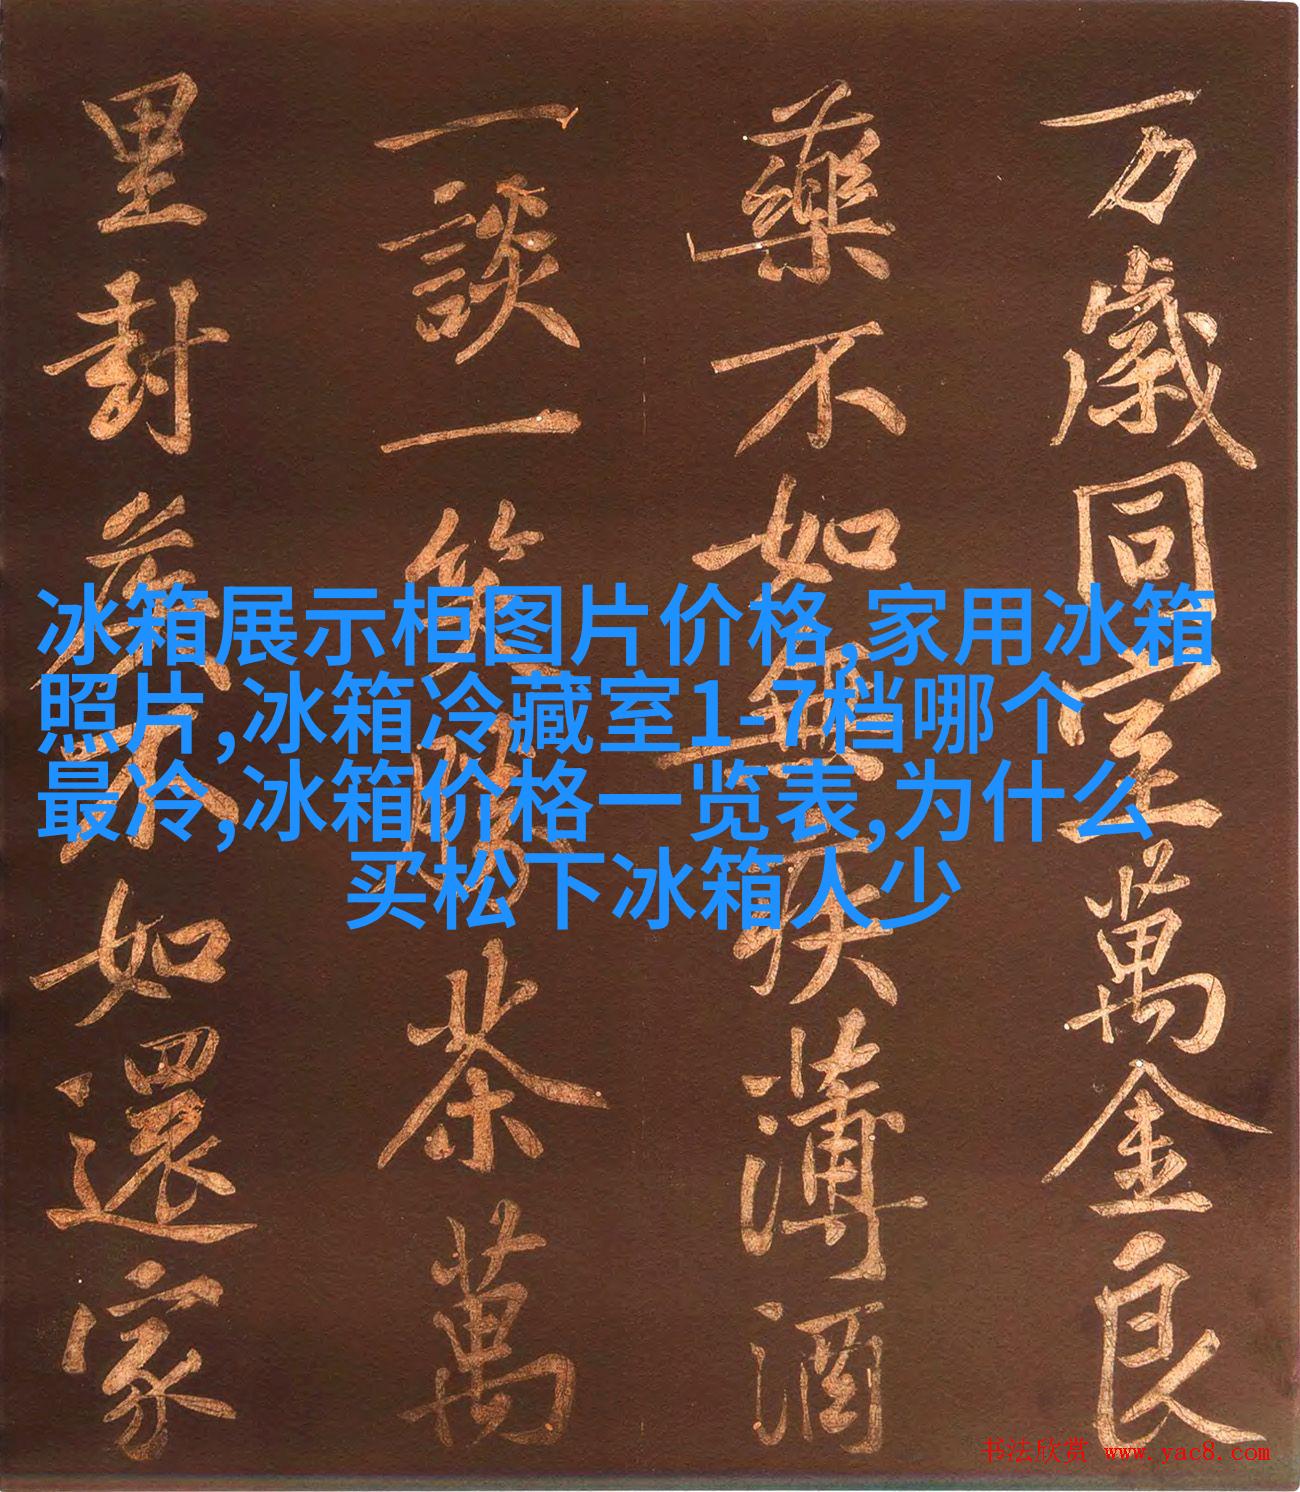 万歲同室萬金良
藥不如無疾薄酒
一談一笑勝茶萬
里封侯不如還家
冰箱展示柜图片价格,家用冰箱
照片,冰箱冷藏室1-7档哪个
最冷,冰箱价格一览表,为什么
买松下冰箱人少
书法欣赏 www.yac8.com